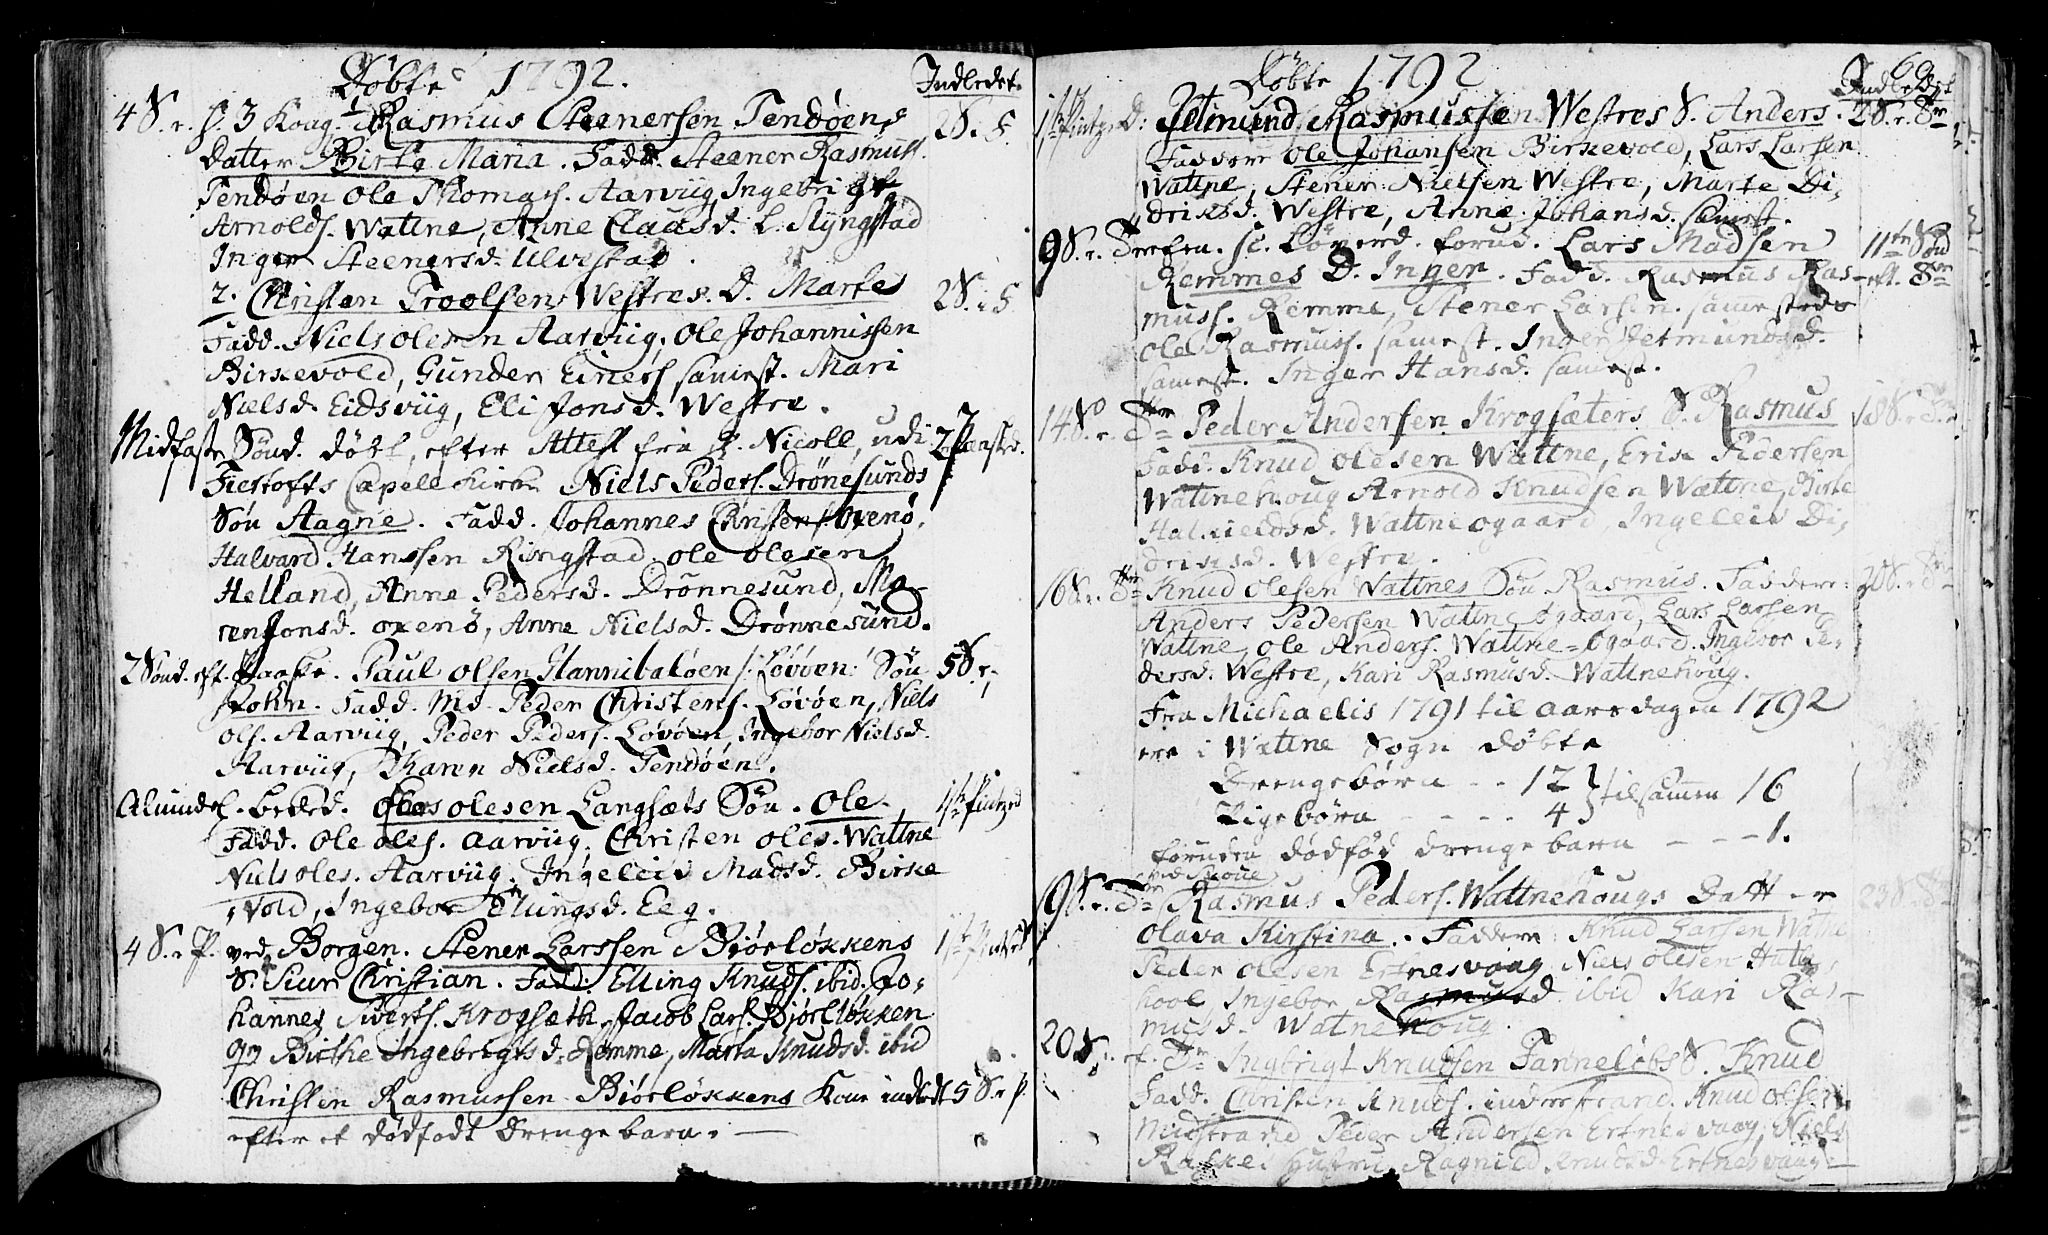 Döbte 1792.
Indledet.
4 S. e. H. 3 Kong. 1 Rasmus Steenersen Tendøens 2 S. i F.
Datter Birte Maria. Fadd. Steener Rasmuss.
Tendøen Ole Thomas. Aarviig, Ingebrigt
Arnolds. Wattne, Anne Claasd. L. Slyngstad
Inger Steenersd. Ulvestad.
2. Christen Troelsen Westres D. Marte 2 S. i F
Fadd. Niels olesen Aarviig, Ole Johannissen
Birkevold, Gunder Einers. samest. Mari
Nielsd. Eidsviig, Eli Jonsd. Westre.
Midfaste Sønd. döbt, efter Attest fra H. Nicoll, udi 2 Paasked.
Fiestofts Capell Kirke Niels Peders. Drönesunds
Sön Aagne. Fadd. Johannes Christens. Oxenö,
Halvard Hanssen Ringstad, ole olesen
Helland, Anne Pedersd. Drönnesund, Ma-
ren Jonsd. oxenö, Anne Nielsd. Drönnesund.
2 Sönd. eft. Paaske. Paul olsen Hannibaløen /: Lövöen: Sön 5 S. e.
John. Fadd. Md. Peder Christens. Lövöen, Niels
ols. Aarviig, Peder Peders. Lövöen, Ingebor Nielsd.
Aarviig, Karen Nielsd. Tendöen.
Almindel. Beded. olesen Langsæts Sön. Ole. 1ste Pintzed
Fadd. Ole oles. Aarviig, Christen oles. Wattne
Niels oles. Aarviig, Ingeleiv Madsd. Birke
vold, Ingebor Ellingsd. Eeg.
4 S. e P. ved Borgen. Stener Larssen Biörløkkens 1ste Pintzed
S. Siur Christian. Fadd. Elling Knuds. ibid. Jo-
hannes Siverts. Krogsæth, Jacob Lars. Biörlökken
og Birthe Ingebrigtsd. Remme, Marta Knudsd. ibid
Christen Rasmussen Biörløkkens Kone indledt 5 S. e P.
efter et dödfødt Drengebarn.
Döbte 1792
69.
Indledet
1ste Pintze D: Jetmund Rasmussen Westres S. Anders. 2 S. e. Tr.
Faddere Ole Johansen Birkevold, Lars Larsen
Wattne, Stener Nielsen Westre, Marte Di,
driksd. Westre, Anne Johansd. samest.
9 S. e. Trefen. Lövend. forud. Lars Madsen 11te Sönd
Remmes D. Inger. Fadd. Rasmus Ras- eft. Tr.
muss. Remme, Stener Larsen. samesteds
Ole Rasmuss. samest. Inger Jetmundsd.
samest. Inger Hansd. samest.
14 S. e. Tr. Peder Andersen Krogsæters S. Rasmus 18 S. e. Tr.
Fadd. Knud olesen Wattne, Erik Pedersen
Wattnehoug Arnold Knudsen Wattne, Birte
Wattneogaard Ingeleiv Di,
driksd. Westre.
16 S. e. Tr. Knud olesen Wattnes Sön Rasmus. Faddere: 20 S. e Tr.
Anders Pedersen Wattne Ogaard, Lars Larsen
Wattne, Ole Anders. Wattne-Ogaard. Ingebor Pe-
dersd. Westre, Kari Rasmusd. Wattnehoug.
Fra Michaelis 1791 til aarsdagen 1792
ere i Wattne Sogn döbte
Drengebörn - - 12 } tilsammen 16
Pigebörn - - - - 4
foruden dödföd drengebarn - - - 1.
9 S. e. Tr. Rasmus Peders. Wattnehougs Datter 23 S. e. Tr.
Olava Kirstina. Faddere: Knud Larsen Wattne
Peder olesen Ertnesvaag, Niels olesen
Ingebor Rasmusd. ibid Kari Ras-
musd. Watnehoug.
20 S. ef. Tr. Ingbrigt Knudsen Tenneløbs S. Knud
Fadd. Christen Knuds. inderstrand. Knud olsen
Midstrand Peder Andersen Ertnesvaag, Niels
Hustru, Ragnild Knudsd. Ertnesvaag